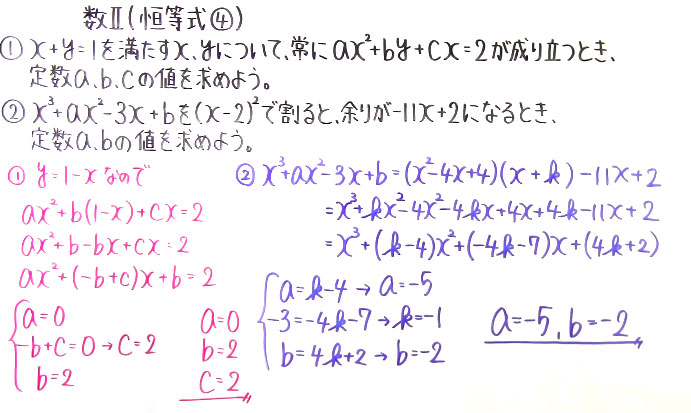 数Ⅱ(恒等式④)
① x+y=1を満たすx、yについて、常にax²+by+cx=2が成り立つとき、
定数a、b、cの値を求めよう。
② x³+ax²-3x+bを(x-2)²で割ると、余りが-11x+2になるとき、
定数a、bの値を求めよう。
① y=1-xなので
ax²+b(1-x)+cx=2
ax²+b-bx+cx=2
ax²+(-b+c)x+b=2
a=0
-b+c=0→c=2
b=2
a=0
b=2
c=2
② x³+ax²-3x+b=(x²-4x+4)(x+k)-11x+2
=x³+kx²-4x²-4kx+4x+4k-11x+2
=x³+(k-4)x²+(-4k-7)x+(4k+2)
a=k-4→a=-5
-3=-4k-7→k=-1
b=4k+2→b=-2
a=-5、b=-2